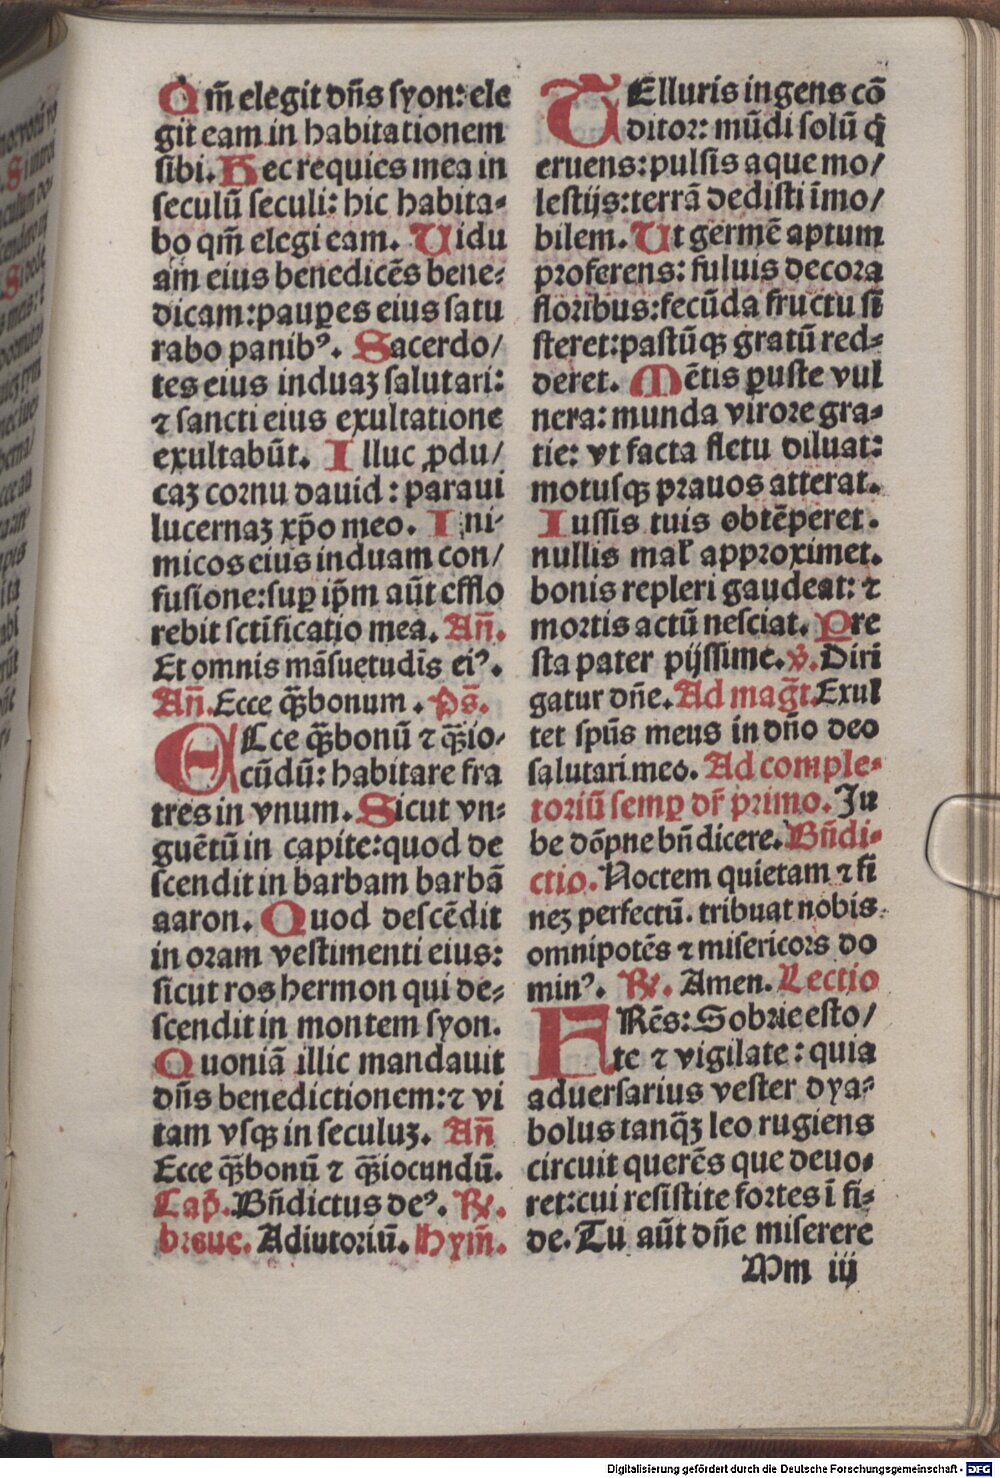 Qm̄ elegit dn̄s syon: ele
git eam in habitationem
sibi. Hec requies mea in
seculū seculi: hic habita⸗
bo qm̄ elegi eam. Uidu
am eius benedicēs bene⸗
dicam: paupes eius satu
rabo panibꝰ. Sacerdo/
tes eius induaꝫ salutari:
⁊ sancti eius exultatione
exultabūt. Illuc ꝓdu/
caꝫ cornu dauid: paraui
lucernaꝫ xp̄o meo. Ini⸗
micos eius induam con/
fusione: suꝑ ip̄m aūt efflo
rebit sctīficatio mea. An̄.
Et omnis māsuetudīs eiꝰ.
An̄. Ecce q̄bonum. Ps̄.
ECce q̄bonū ⁊ q̄io⸗
cūdū: habitare fra
tres in vnum. Sicut vn⸗
guētū in capite: quod de
scendit in barbam barbā
aaron. Quod descēdit
in oram vestimenti eius:
sicut ros hermon qui de⸗
scendit in montem syon.
Quoniā illic mandauit
dn̄s benedictionem: ⁊ vi
tam vsqꝫ in seculuꝫ. An̄
Ecce q̄bonū ⁊ q̄iocundū.
Cap̄. Bn̄dictus deꝰ. ℟.
breue. Adiutoriū. Hym̄.
TElluris ingens cō
ditor: mūdi solū q̄
eruens: pulsis aque mo/
lestijs: terrā dedisti īmo/
bilem. Ut germē aptum
proferens: fuluis decora
floribus: fecūda fructu si
steret: pastūqꝫ gratū red⸗
deret. Mētis ꝑuste vul
nera: munda virore gra⸗
tie: vt facta fletu diluat:
motusqꝫ prauos atterat.
Iussis tuis obtēperet.
nullis mal̄ approximet.
bonis repleri gaudeat: ⁊
mortis actū nesciat. Pre
sta pater pijssime. ℣. Diri
gatur dn̄e. Ad maḡt. Exul
tet spūs meus in dn̄o deo
salutari meo. Ad comple⸗
toriū semꝑ dr̄ primo. Ju
be dōpne bn̄dicere. Bn̄di⸗
ctio. Noctem quietam ⁊ fi
neꝫ perfectū. tribuat nobis
omnipotēs ⁊ misericors do
minꝰ. ℟. Amen. Lectio
FRēs: Sobrie esto/
te ⁊ vigilate: quia
aduersarius vester dya⸗
bolus tanq̄ꝫ leo rugiens
circuit querēs que deuo⸗
ret: cui resistite fortes ī fi⸗
de. Tu aūt dn̄e miserere
Mm iij
Digitalisierung gefördert durch die Deutsche Forschungsgemeinschaft - DFG